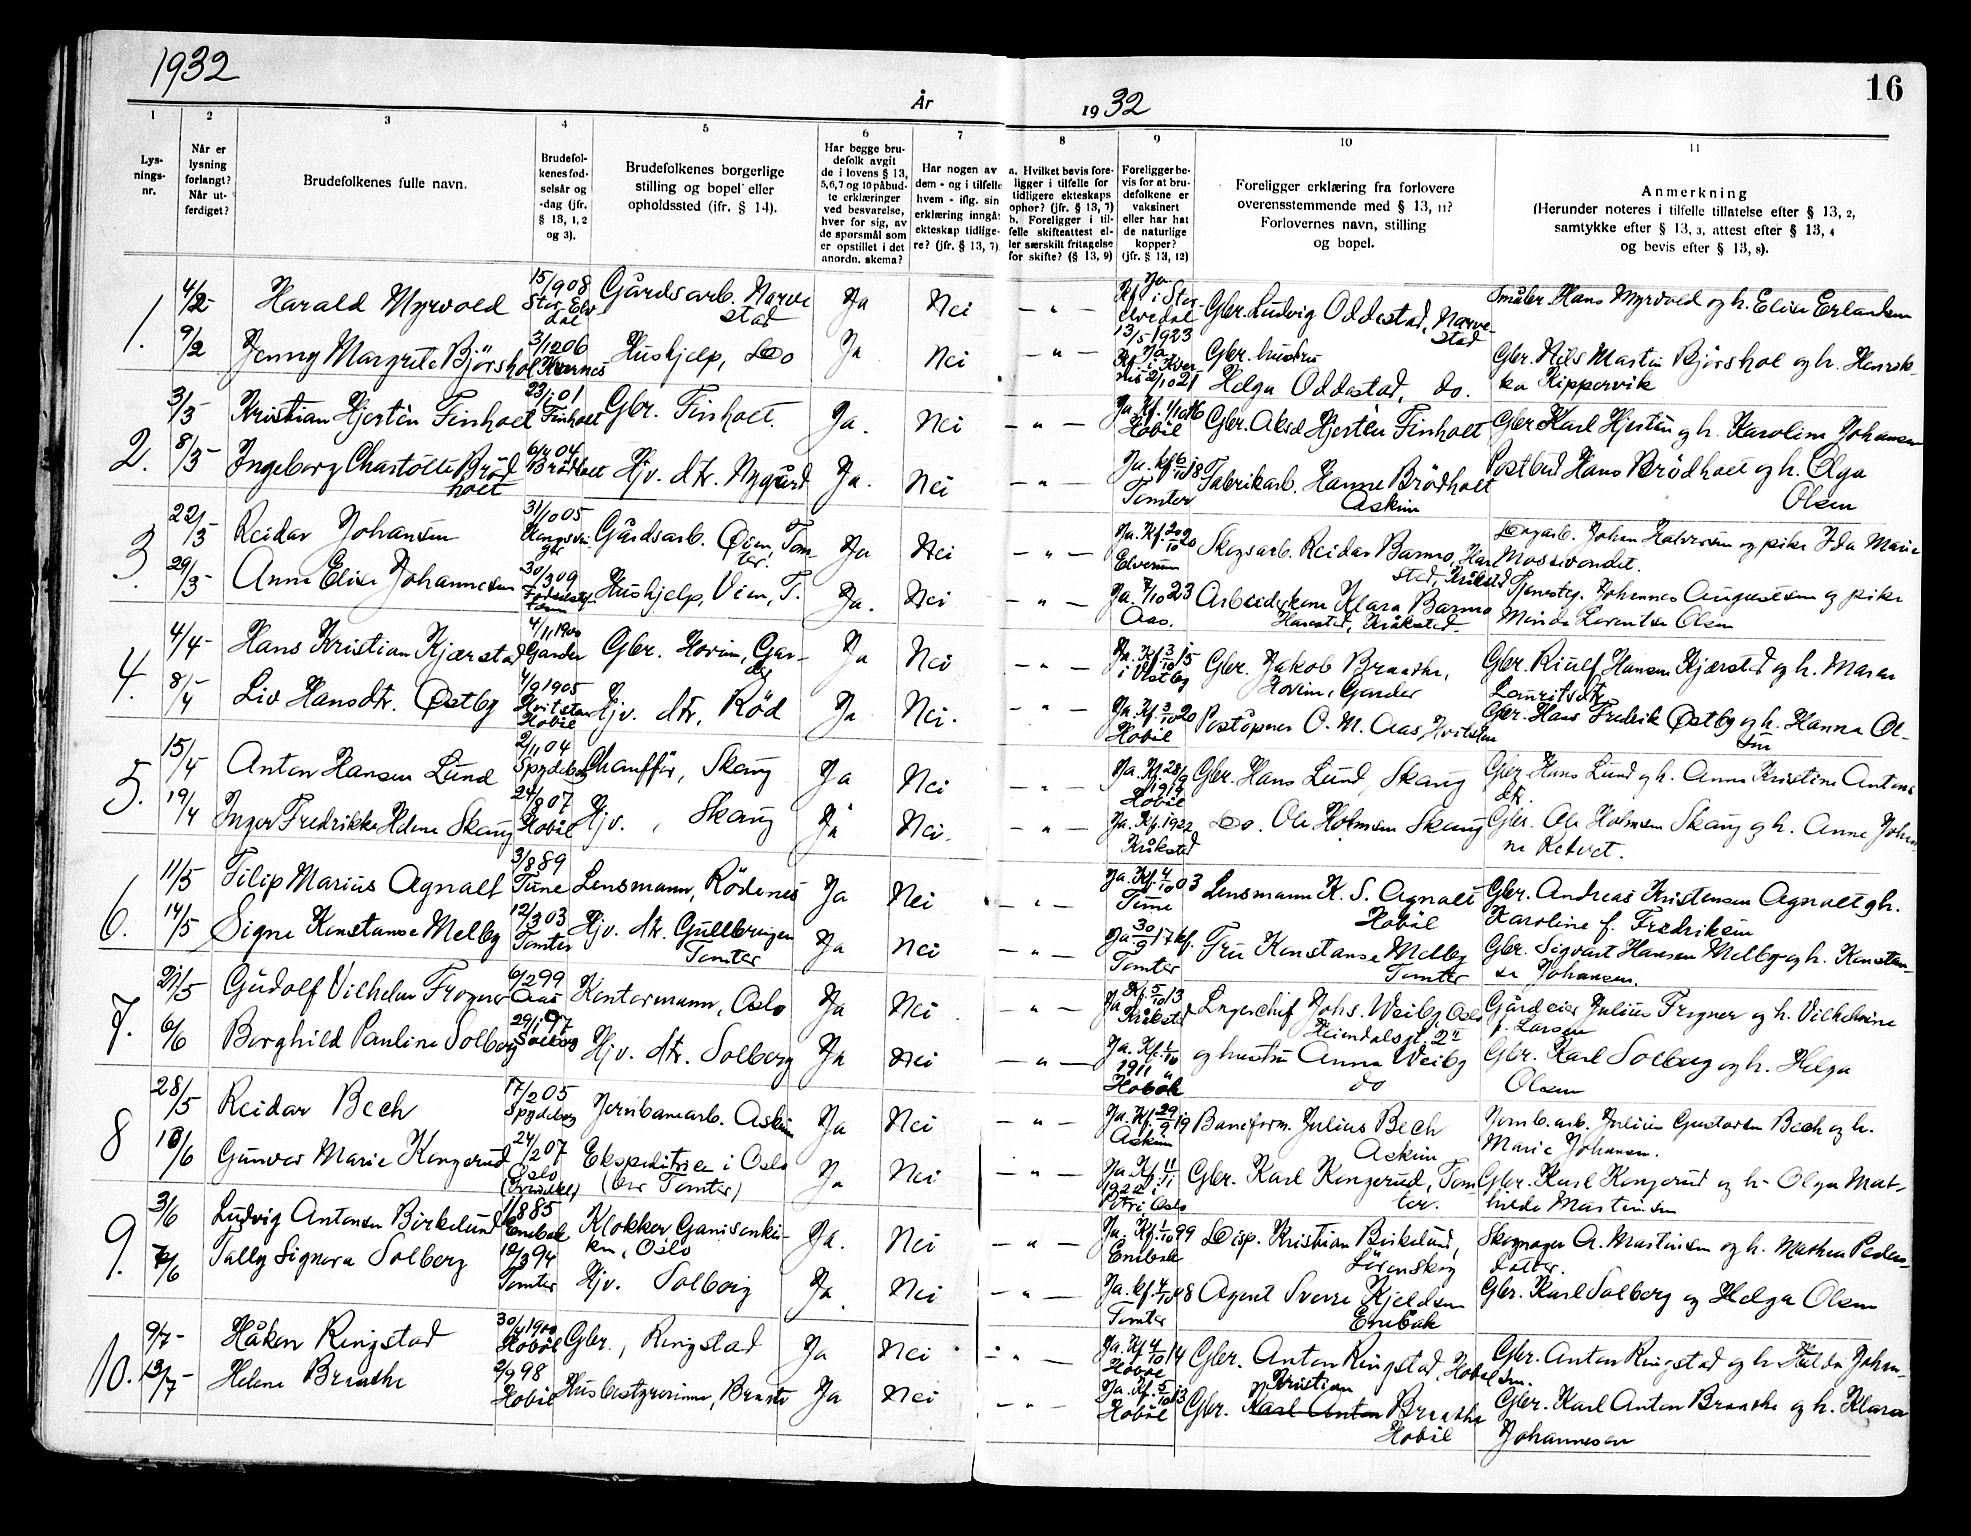 1932
16
År
19 32
1
2
3
4
5
6
7
8
9
10
11
Lys-
nings-
nr.
Når er
lysning
forlangt?
Når ut-
ferdiget?
Brudefolkenes fulle navn.
Brudefol-
kenes fød-
selsår og
-dag (jfr.
§ 13, 1, 2
og 3).
Brudefolkenes borgerlige
stilling og bopel eller
opholdssted (jfr. § 14).
Har begge bru-
defolk avgit
de i lovens § 13,
5,6,7 og 10 påbud-
te erklæringer
ved besvarelse,
hver for sig, av
de spørsmål som
er opstillet i det
anordn. skema?
Har nogen av
dem - og i tilfelle
hvem - iflg. sin
erklæring inngåt
ekteskap tidlige-
re? (jfr. § 13, 7)
a. Hvilket bevis fore-
ligger i tilfelle for
tidligere ekteskaps
ophør? (jfr. § 13, 7)
b. Foreligger i til-
felle skifteattest el-
ler særskilt fritagelse
for skifte? (§ 13, 9)
Foreligger be-
vis for at bru-
defolkene er
vaksinert
eller har hat
de naturlige
kopper?
(jfr. § 13, 12)
Foreligger erklæring fra forlovere
overensstemmende med § 13, 11?
Forlovernes navn, stilling
og bopel.
Anmerkning
(Herunder noteres i tilfelle tillatelse efter § 13, 2,
samtykke efter § 13, 3, attest efter § 13, 4
og bevis efter § 13, 8).
1.
4/2 Harald Myrvold 15/9 08 Gårdsarb. Narve
stad Ja Nei — " — Ja Gbr. Ludvig Oddestad, Narve
stad Småbr. Hans Myrvold og h. Elise Erlandsen
13/5 1923
9/2 Jenny Margrete Bjørshol 3/12 06 Hushjelp, Do Ja Nei — " — Ja Gbr. hustru
Helga Oddestad, do. Gbr. Nils Martin Bjørshol og h. Henrik-
ka Kippervik
2.
3/3 Kristian Hjertén Finholt 23/1 01 Finholt Gbr. Finholt. Ja. Nei — " — Ja Kf. 1/10 16 Hobøl Gbr. Aksel Hjertén Finholt Gbr. Karl Hjertén og h. Karoline Johansen
8/3 Ingeborg Charlotte Brød
holt 6/4 04 Brødholt Hjv. dtr. Nygård Ja. Nei — " — Ja. kf. 6/10 18 Tomter Fabrikarb. Hanne Brødholt
Askim Postbud Hans Brødholt og h. Olga
Olsen
3.
22/3 Reidar Johansen 31/10 05 Gårdsarb. Øien, Tom-
ter. Ja Nei — " — Ja. Kf. 20/10 20 Elverum Skogsarb. Reidar Barmo, Har
stad, Kråkstad Johan Halvorsen og pike Ida Marie
Mossvondet.
29/3 Anne Elise Johannesen 30/3 09 Hushjelp, Vien, T. Ja. Nei — " — Ja. 7/10 23 Aas. Klara Barmo
Harestad, Kråkstad. Tjenestg. Johannes Augustsen og pike
Minda Lorentse Olsen
4.
4/4 Hans Kristian Kjærstad 4/11 1900 Garder Gbr. Hovin, Gar-
der Ja Nei — " — Ja. Kf. 3/10 15 i Vestby Gbr. Jakob Braathe,
Hovin, Garder Gbr. Riulf Hansen Kjærstad og h. Maren
Lauritsdtr.
8/4 Liv Hansdtr. Østby 4/9 1905 Hobøl Hjv. dtr. Röd Ja Nei. — " — Ja. Kf. 3/10 20 Hobøl Poståpner O. M. Aas, Gbr. Hans Fredrik Østby og h. Hanna Ol-
sen
5.
15/4 Anton Hansen Lund 2/11 04 Spydeberg Chauffør, Skaug Ja Nei — " — Ja. Kf. 28/9 1919 Hobøl Gbr. Hans Lund, Skaug Gbr. Hans Lund og h. Anne Kristine Antons
dtr.
19/4 Inger Fredrikke Helene Skaug 24/8 07 Hobøl Hjv. , Skaug Ja Nei. — " — Ja. Kf. 1922 Kråkstad Do. Ole Holmsen Skaug Gbr. Ole Holmsen Skaug og h. Anne Johan
ne
6.
11/5 Filip Marius Agnalt 3/8 89 Tune Lensmann, Rödenes Ja Nei — " — Ja. Kf. 4/10 03 Tune Lensmann K. S. Agnalt
Hobøl Gbr. Andreas Kristensen Agnalt og h.
Karoline f. Fredriksen
14/5 Signe Konstanse Melby 12/3 03 Tomter Hjv. dtr. Gullbringen
Tomter Ja Nei — " — Ja 30/9 17 kf. Tomter Fru Konstanse Melby
Tomter Gbr. Sigvart Hansen Melby og h. Konstan-
se Johansen.
7.
21/5 Gudolf Vilhelm Frogner 6/2 99 Aas Kontormann, Oslo Ja Nei — " — Ja Kf. 5/10 13 Kråkstad Lagerchef Johs. Weiby, Oslo Gårdeier Julius Frogner og h. Vilhelmine
f. Larsen
6/6 Borghild Pauline Solberg 29/1 97 Solberg Hjv. dtr. Solberg Ja Nei — " — Ja. Kf. 1/10 1911 Hobøl og hustru Anna Weiby
do Gbr. Karl Solberg og h. Helga
Olsen
8
28/5 Reidar Bech 17/2 05 Spydeberg Jernbanearb. Askim Ja Nei — " — Ja. Kf. 29/9 19 Askim Baneform. Julius Bech
Askim Jernb. arb. Julius Gustavsen Bech og h.
Marie Johansen.
10/6 Gunvor Marie Kongerud 24/2 07 Oslo Ekspeditrise i Oslo
(bor Tomter) Ja Nei — " — Ja. Kf. 11/11 1922 i Petri, Oslo Gbr. Karl Kongerud, Tom
ter. Gbr. Karl Kongerud og h. Olga Mat-
hilde Martinsen
9.
3/6 Ludvig Antonsen Birkelund 11/8 85 Enebak Klokker, Garnisonki-
rken, Oslo Ja. Nei — " — Ja. Kf. 1/10 99 Enebak Disp. Kristian Birkelund,
Lörenskog Skogvoger A. Martinsen og h. Mathea Peders-
datter.
7/6 Tally Signora Solberg 12/3 94 Tomter Hjv. Solberg Ja. Nei — " — Ja. kf. 4/10 08 Tomter Agent Sverre Kjeldsen
Enebak Gbr. Karl Solberg og Helga Olsen
10.
9/7 Håkon Ringstad 30/4 1900 Hobøl Gbr., Ringstad Ja Nei — " — Ja. Kf. 4/10 14 Hobøl Gbr. Anton Ringstad, Hobøl Gbr. Anton Ringstad og h. Hilda Johan-
sen.
13/7 Helene Braathe 2/9 98 Hobøl Husbestyrerinne, Braate Ja Nei — " — Ja. Kf. 5/10 13 Hobøl Gbr. Kristian Karl Anton Braathe
Hobøl Gbr. Karl Anton Braathe og h. Klara
Johannesen